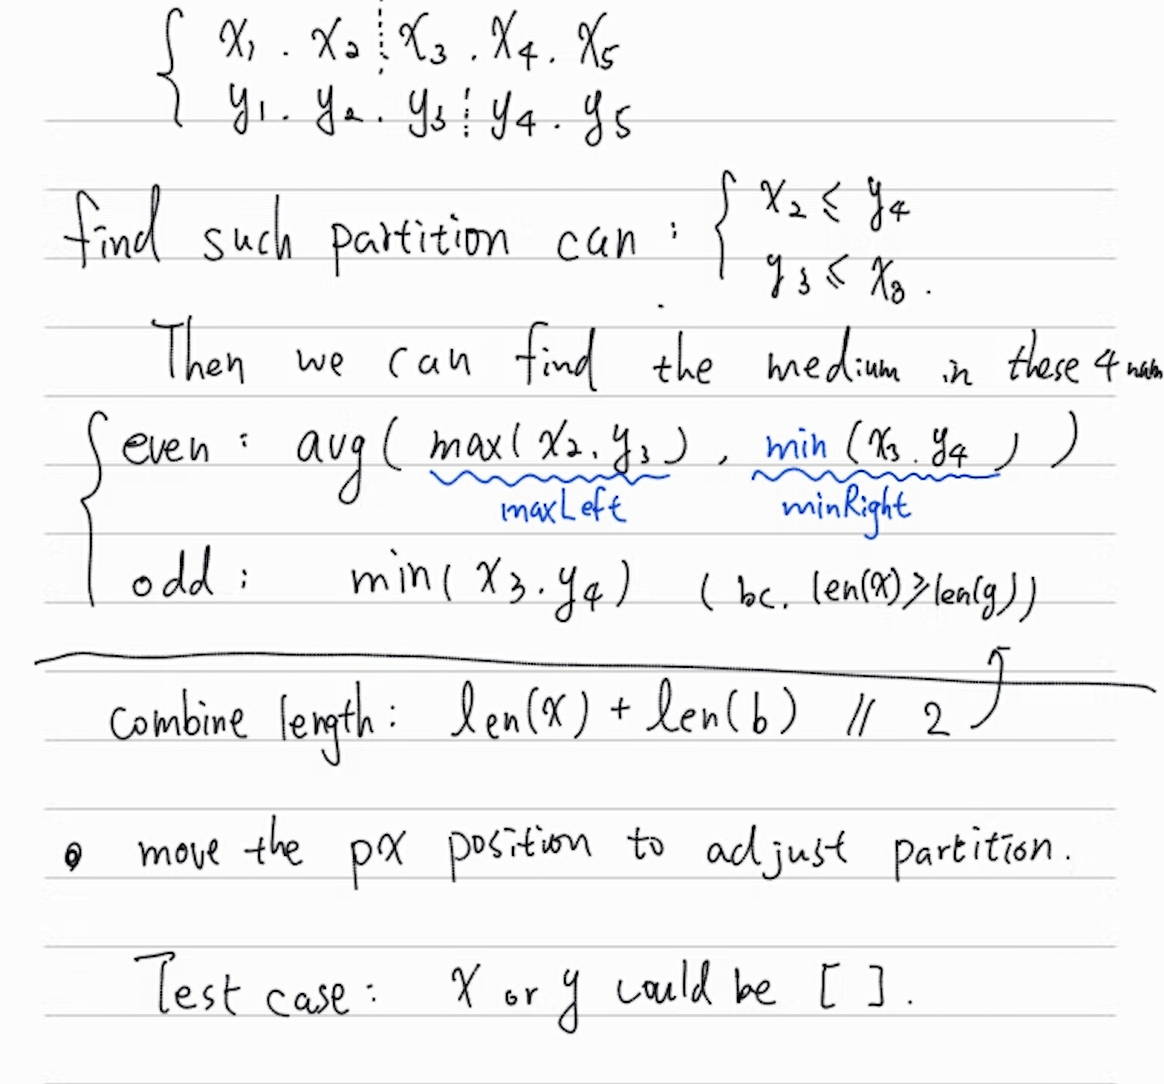 { x₁ . x₂ ⋮ x₃ . x₄ . x₅
y₁ . y₂ . y₃ ⋮ y₄ . y₅
find such partition can : { x₂ ≤ y₄
y₃ ≤ x₃ .
Then we can find the medium in these 4 num
{ even : avg ( max( x₂ . y₃ ) , min ( x₃ . y₄ ) )
maxLeft minRight
odd : min( x₃ . y₄ ) ( bc. len(x) ≥ len(y) )
combine length : len(x) + len(b) // 2
move the px position to adjust partition .
Test case : x or y could be [ ] .